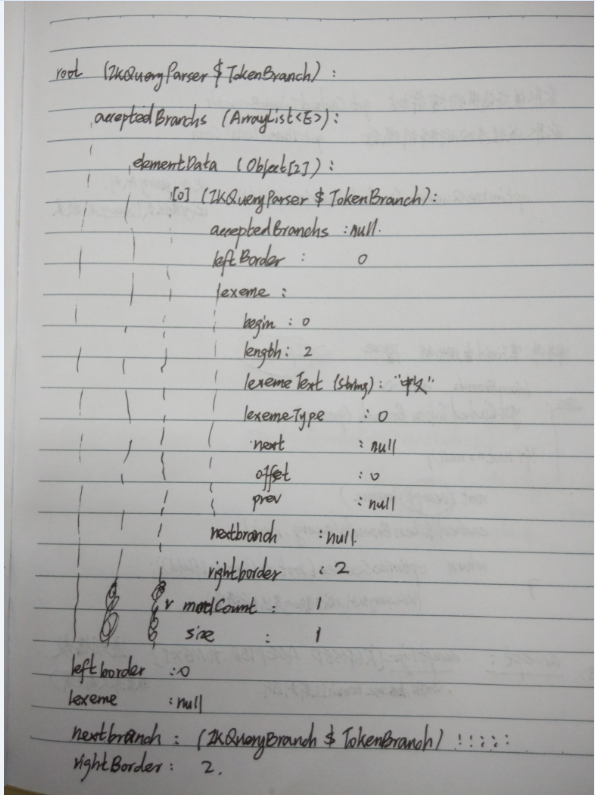 root (IKQueryParser $ TokenBranch) :
acceptedBranchs (ArrayList<E>) :
elementData (Object[2]) :
[0] (IKQueryParser $ TokenBranch) :
acceptedBranchs : null.
leftBorder : 0
lexeme :
begin : 0
length : 2
lexemeText (String) : "中文"
lexemeType : 0
next : null
offset : 0
prev : null
nextbranch : null.
rightborder : 2
modCount : 1
size : 1
leftborder : 0
lexeme : null
nextbranch : (IKQueryBranch $ TokenBranch) !!;;:
rightBorder : 2.